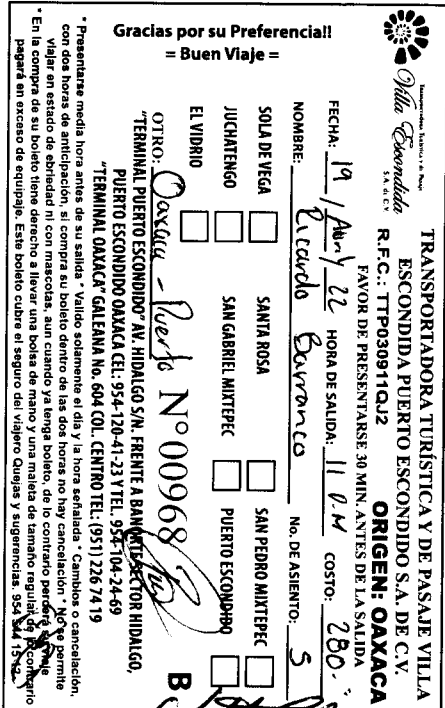 Transportadora Turística y de Pasaje
Villa Escondida
S.A. de C.V.
TRANSPORTADORA TURÍSTICA Y DE PASAJE VILLA
ESCONDIDA PUERTO ESCONDIDO S.A. DE C.V.
R.F.C.: TTP030911QJ2 ORIGEN: OAXACA
FAVOR DE PRESENTARSE 30 MIN. ANTES DE LA SALIDA
FECHA: 19 / Abril / 22 HORA DE SALIDA: 11 P.M COSTO: 280.-
NOMBRE: Ricardo Barranco No. DE ASIENTO: 5
SOLA DE VEGA SANTA ROSA SAN PEDRO MIXTEPEC
JUCHATENGO SAN GABRIEL MIXTEPEC PUERTO ESCONDIDO
EL VIDRIO
OTRO: Oaxaca - Puerto N° 00968 B
"TERMINAL PUERTO ESCONDIDO" AV. HIDALGO S/N. FRENTE A BANORTE SECTOR HIDALGO,
PUERTO ESCONDIDO OAXACA CEL: 954-120-41-23 Y TEL. 954-104-24-69
"TERMINAL OAXACA" GALEANA No. 604 COL. CENTRO TEL: (951) 226 74 19
* Presentarse media hora antes de su salida * Valido solamente el dia y la hora señalada * Cambios o cancelación,
con dos horas de anticipación, si compra su boleto dentro de las dos horas no hay cancelación * No se permite
viajar en estado de ebriedad ni con mascotas, aun cuando ya tenga boleto, de lo contrario perderá su viaje
* En la compra de su boleto tiene derecho a llevar una bolsa de mano y una maleta de tamaño regular, de lo contrario
pagará en exceso de equipaje. Este boleto cubre el seguro del viajero Quejas y sugerencias. 954 544 15 12
Gracias por su Preferencia!!
= Buen Viaje =